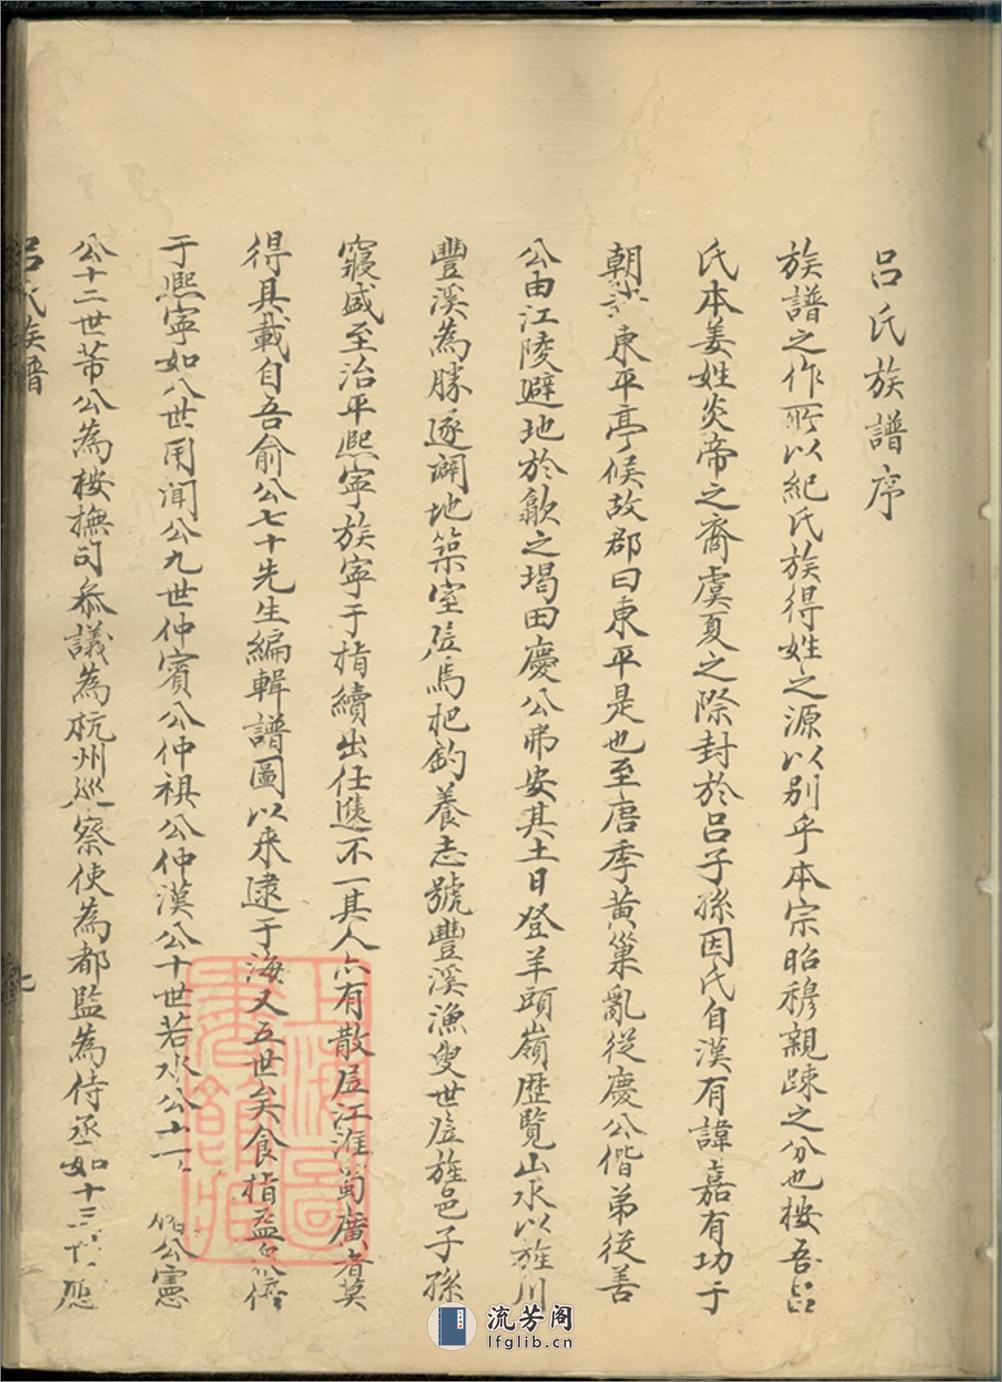 呂氏族譜序
族譜之作所以紀氏族得姓之源以別乎本宗昭穆親踈之分也按吾呂
氏本姜姓炎帝之裔虞夏之際封於呂子孫因氏自漢有諱嘉有功于
朝 東平亭候故郡曰東平是也至唐季黃巢亂從慶公偕弟從善
公由江陵避地於歙之堨田慶公弗安其土日登羊頭嶺歷覽山水以旌川
豐溪為勝遂闢地築室 馬杷釣養志號豐溪漁叟世居旌邑子孫
寢盛至治平熙寧族寧于指續出仕進不一其人亦有散居江淮蜀廣者莫
得具載自吾俞公七十先生編輯譜圖以來逮于海又五世矣食指益
于熙寧如八世用聞公九世仲賓公仲祺公仲漢公十世若水公十一 公憲
公十二世芾公為按撫司叅議為杭州巡察使為都監為侍丞如十三 應
呂氏族譜
上海圖書館藏
流芳阁
lfglib.cn